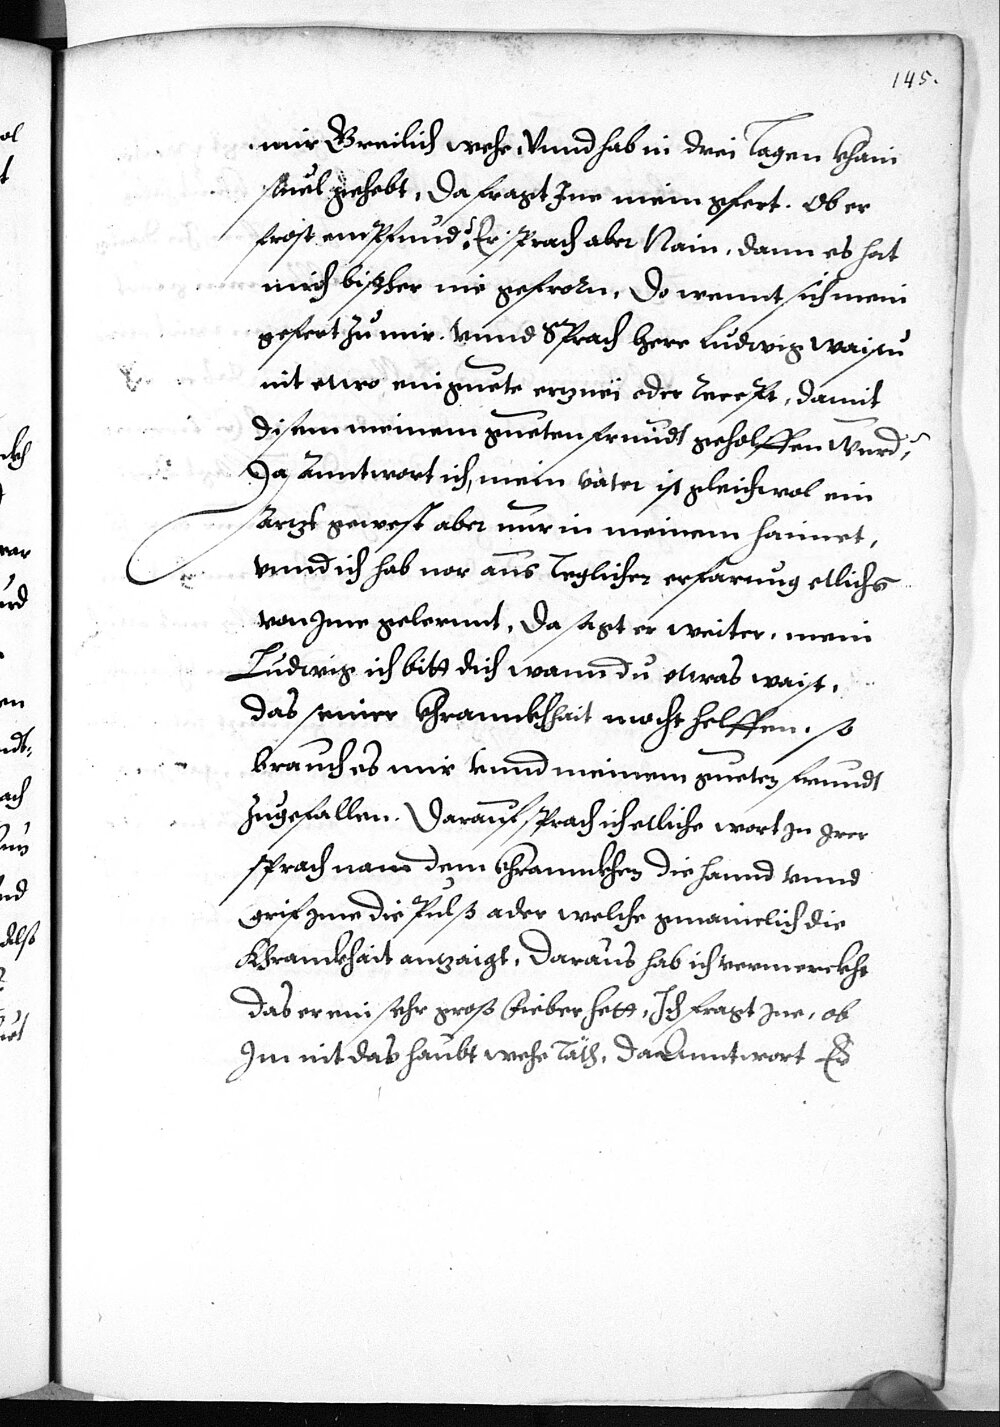 145.
mir Greilich wehe, Vnnd hab in drei Tagen khain
stuel gehebt, Da fragt Ine mein gfert. Ob er
frost empfund? Er sprach aber Nain, dann es hat
mich bißher nie gefrorn, Do wennt sich mein
gefert zu mir. Vnnd Sprach herr Ludwig waistu
nit etwo ein guete ertznei oder Recept, damit
disem meinem gueten freundt geholffen wurd?
Da Anntwort ich, mein vater ist gleichwol ein
artzt gewest aber nur in meinem haimet,
vnnd ich hab nor aus teglicher erfarung etlichs
von Ime gelernnt, Da sagt er weiter, mein
Ludwig ich bitt dich wann du etwas waist,
das seiner khrannkhait mocht helffen, so
brauch es mir vnnd meinem gueten freundt
zugefallen. Darauf sprach ich etliche wort In Irer
sprach nam dem khrannkhen die hannd vnnd
grif Ime die Pulß ader welche gmainclich die
khranckhait anzaigt, Daraus hab ich vermerckht
das er ein sehr groß fieber hett, Ich fragt Ine, ob
Im nit das haubt wehe täth, Da Anntwort Er